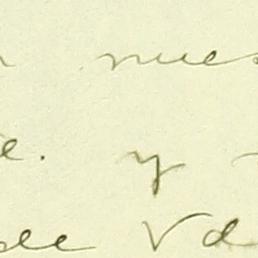 nues
y
de Vd